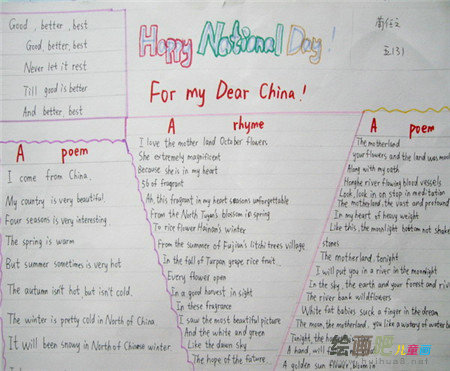 Good, better, best
Good, better, best
Never let it rest
Till good is better
And better best
Happy National Day!
For my Dear China!
五13)
A poem
I come from China.
My country is very beautiful.
Four seasons is very interesting
The spring is warm
But summer sometimes is very hot
The autumn isn't hot but isn't cold.
The winter is pretty cold in North of China
It will been snowy in North of Chinese winter.
A rhyme
I love the mother land October flowers
She extremely magnificent
Because she is in my heart
56 of fragrant
Ah, this fragrant in my heart seasons unforgettable
From the North Tuyan's blossom in spring
To rice flower Hainan's winter
From the summer of Fujian's litchi trees village
In the fall of Tarpan grape rice fruit
Every flower open
In a good harvest in sight
In these fragrance
I saw the most beautiful picture
And the white and green
Like the dawn sky
The hope of the future.
A poem
The motherland
your flowers and the land was
Along with my oath
Honghe river flowing blood vessels
Look, look in on stop in meditation
The motherland, the vast and profound
In my heart of heavy weight
Like this, the moonlight bottom not
stones
The motherland, tonight
I will put you in a river in the moonlight
In the sky, the earth and your forest and
The river bank wildflowers
White fat babies suck a finger in the dream
The moon, the motherland, you like a watery of water
Tonight, the
A hand, will
A golden sun flower, bloom in
绘画吧 儿童画
www.huihua8.net